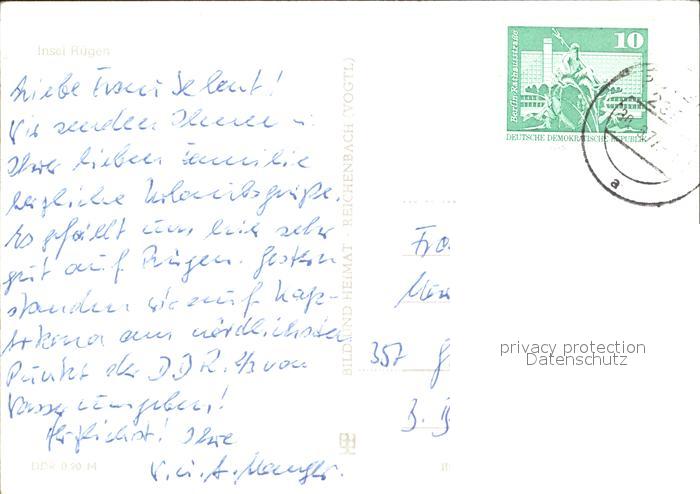 Insel Rügen
Liebe Frau
Wir senden Ihnen u.
Ihrer lieben Familie
herzliche Urlaubsgrüße.
Es gefällt uns hier sehr
gut auf Rügen. Gestern
standen wir auf Kap-
Arkona am nördlichsten
Punkt der DDR, 2/3 von
Wasser umgeben!
Herzlichst! Ihre
DDR 0,20 M
BILD UND HEIMAT REICHENBACH (VOGTL)
10
Berlin, Rathausstraße
DEUTSCHE DEMOKRATISCHE REPUBLIK
a
357
privacy protection
Datenschutz